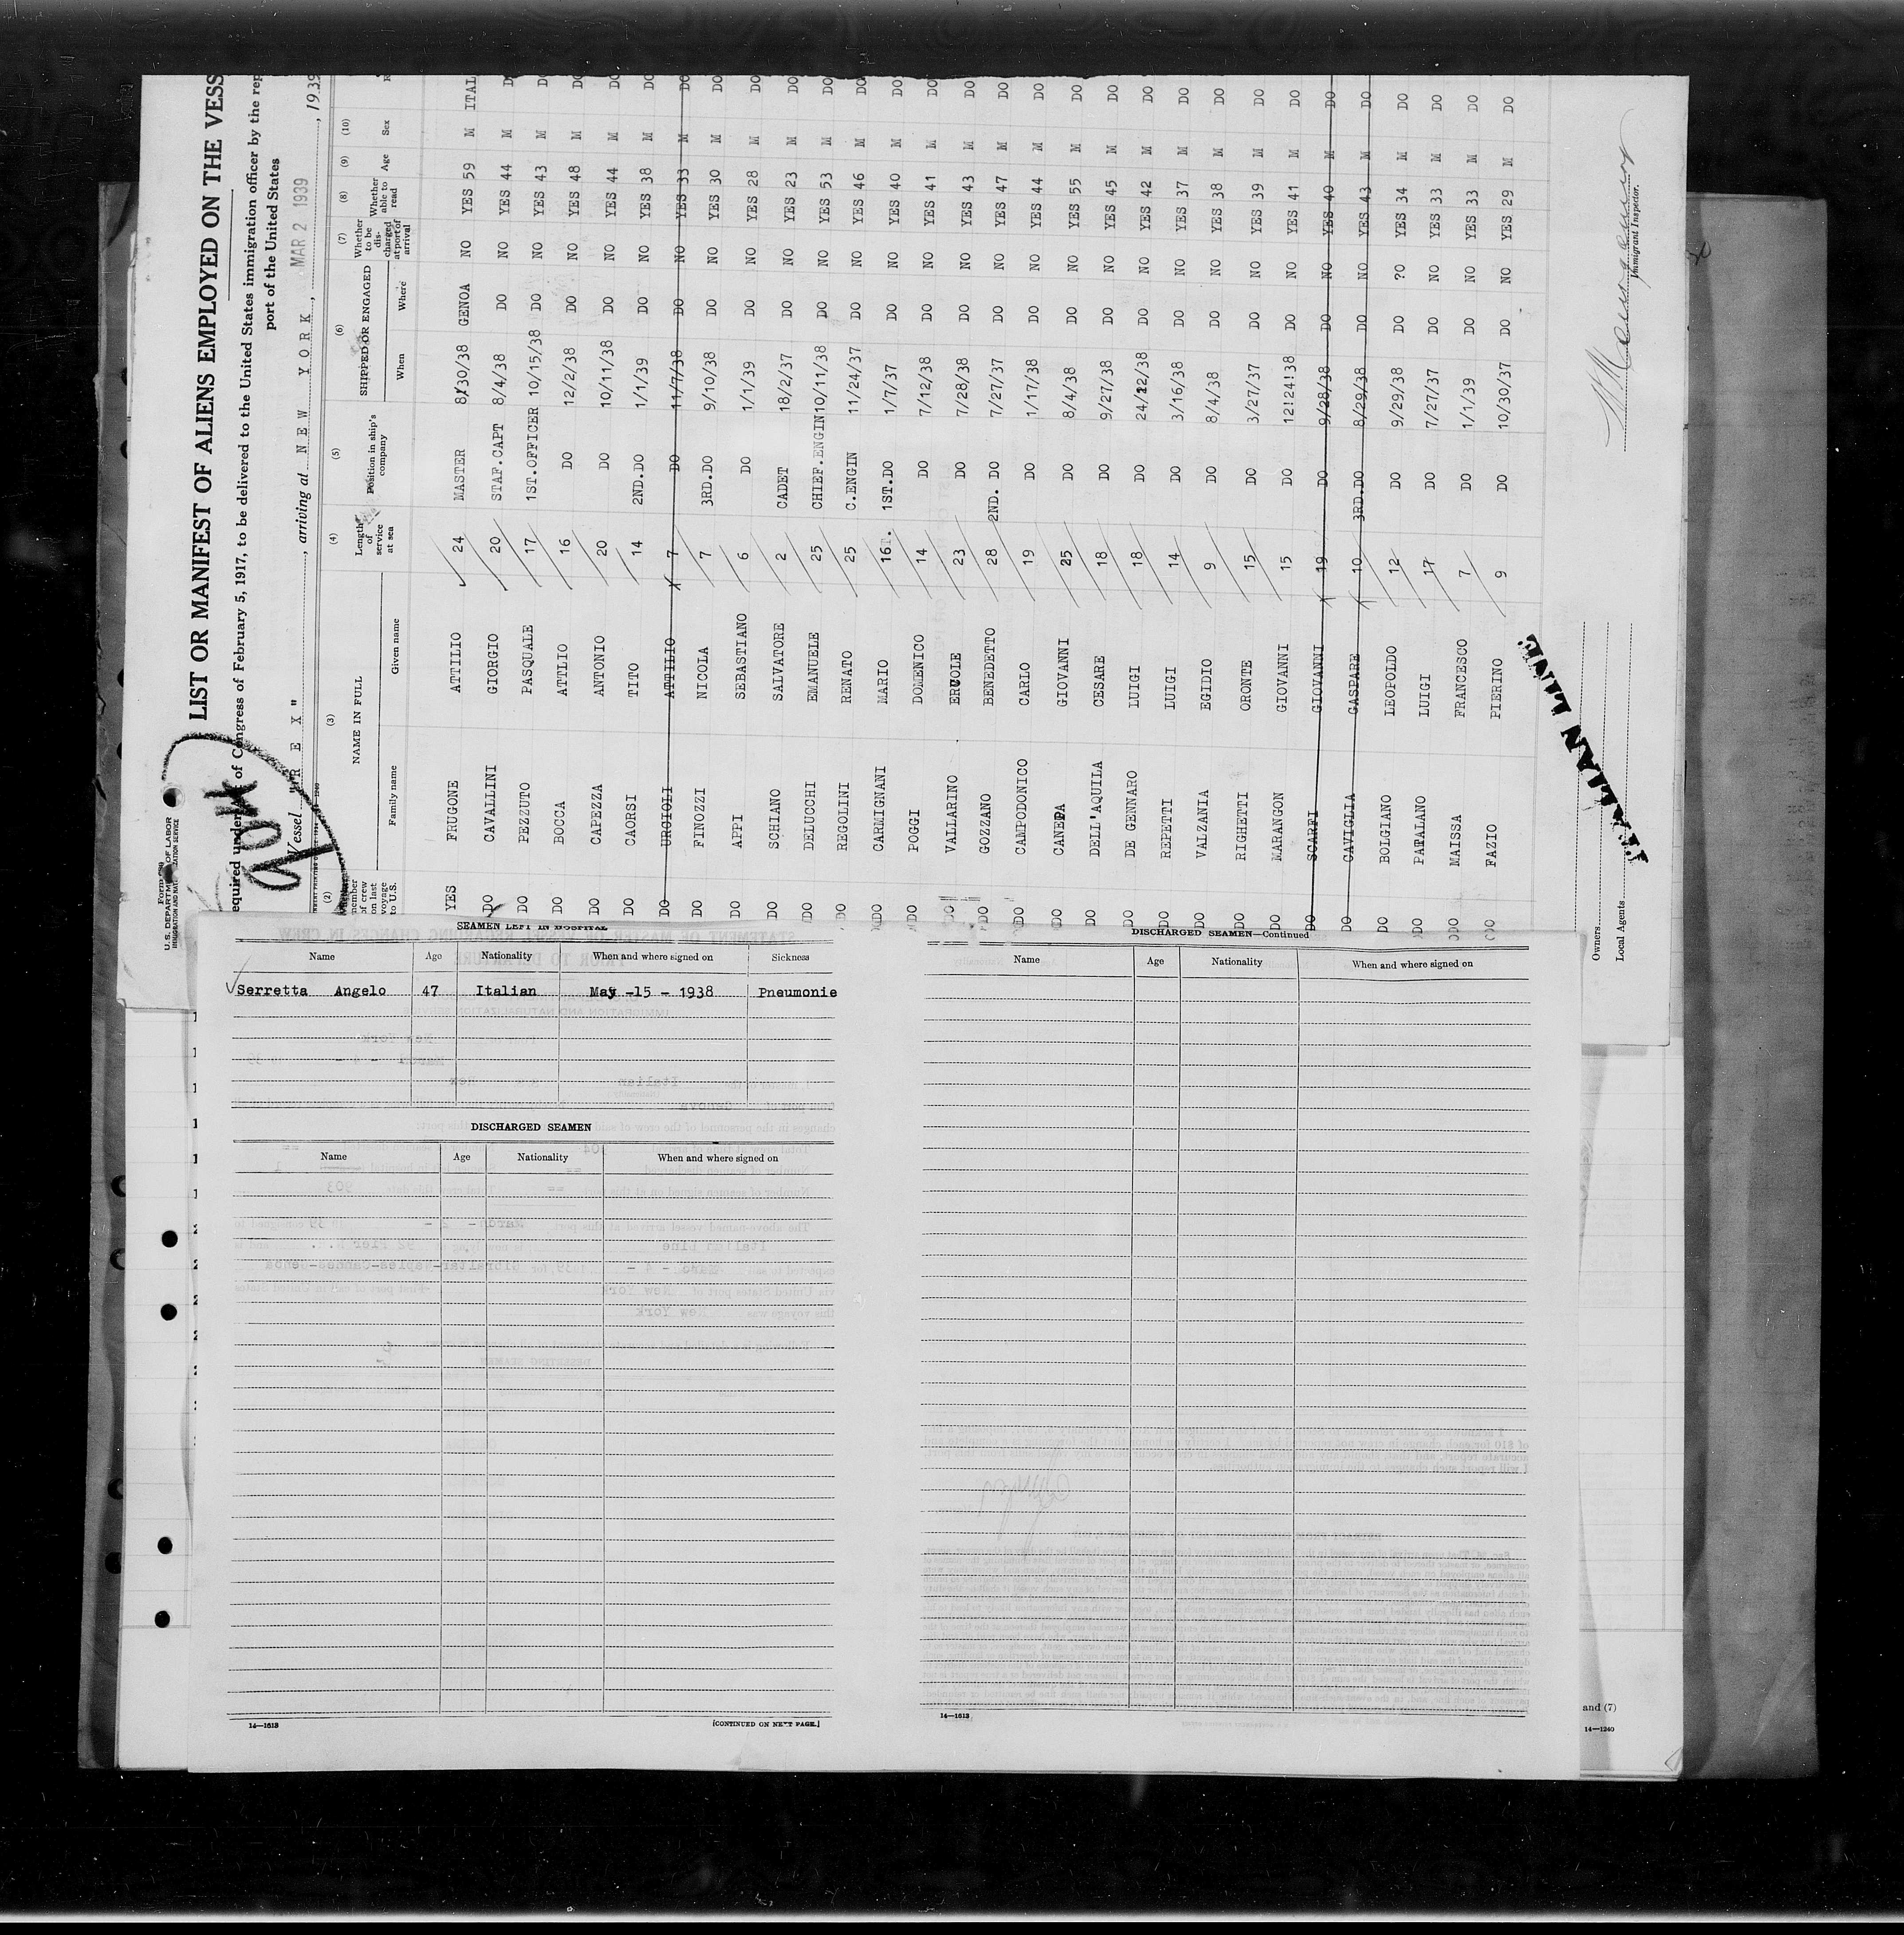 Form 689
U.S. DEPARTMENT OF LABOR
IMMIGRATION AND NATURALIZATION SERVICE
LIST OR MANIFEST OF ALIENS EMPLOYED ON THE VESS
equired under of Congress of February 5, 1917, to be delivered to the United States immigration officer by the rep
port of the United States
Vessel "R E X", arriving at N E W Y O R K, MAR 2 1939, 1939
(2) (3) (4) (5) (6) (7) (8) (9) (10)
member of crew on last voyage to U.S. NAME IN FULL Family name Given name Length of service at sea Position in ship's company SHIPPED OR ENGAGED When Where Whether to be discharged at port of arrival Whether able to read Age Sex
YES FRUGONE ATTILIO 24 MASTER 8/30/38 GENOA NO YES 59 M ITAL
DO CAVALLINI GIORGIO 20 STAF.CAPT 8/4/38 DO NO YES 44 M DO
DO PEZZUTO PASQUALE 17 1ST.OFFICER 10/15/38 DO NO YES 43 M DO
DO BOCCA ATTLIO 16 DO 12/2/38 DO NO YES 48 M DO
DO CAPEZZA ANTONIO 20 DO 10/11/38 DO NO YES 44 M DO
DO CAORSI TITO 14 2ND.DO 1/1/39 DO NO YES 38 M DO
DO URCIOLI ATTILIO 7 DO 11/7/38 DO NO YES 33 M DO
DO FINOZZI NICOLA 7 3RD.DO 9/10/38 DO NO YES 30 M DO
DO APPI SEBASTIANO 6 DO 1/1/39 DO NO YES 28 M DO
DO SCHIANO SALVATORE 2 CADET 18/2/37 DO NO YES 23 M DO
DO DELUCCHI EMANUELE 25 CHIEF.ENGIN 10/11/38 DO NO YES 53 M DO
DO REGOLINI RENATO 25 C.ENGIN 11/24/37 DO NO YES 46 M DO
DO CARMIGNANI MARIO 16 1ST.DO 1/7/37 DO NO YES 40 M DO
DO POGGI DOMENICO 14 DO 7/12/38 DO NO YES 41 M DO
DO VALLARINO ERCOLE 23 DO 7/28/38 DO NO YES 43 M DO
DO GOZZANO BENEDETTO 28 2ND. DO 7/27/37 DO NO YES 47 M DO
DO CAMPODONICO CARLO 19 DO 1/17/38 DO NO YES 44 M DO
DO CANEPA GIOVANNI 25 DO 8/4/38 DO NO YES 55 M DO
DO DELL'AQUILA CESARE 18 DO 9/27/38 DO NO YES 45 M DO
DO DE GENNARO LUIGI 18 DO 24/12/38 DO NO YES 42 M DO
DO REPETTI LUIGI 14 DO 3/16/38 DO NO YES 37 M DO
DO VALZANIA EGIDIO 9 DO 8/4/38 DO NO YES 38 M DO
DO RIGHETTI ORONTE 15 DO 3/27/37 DO NO YES 39 M DO
DO MARANGON GIOVANNI 15 DO 12!24!38 DO NO YES 41 M DO
DO SCARFI GIOVANNI 19 DO 9/28/38 DO NO YES 40 M DO
DO CAVIGLIA GASPARE 10 3RD.DO 8/29/38 DO NO YES 43 M DO
DO BOLGIANO LEOPOLDO 12 DO 9/29/38 DO ?O YES 34 M DO
DO PATALANO LUIGI 17 DO 7/27/37 DO NO YES 33 M DO
DO MAISSA FRANCESCO 7 DO 1/1/39 DO NO YES 33 M DO
DO FAZIO PIERINO 9 DO 10/30/37 DO NO YES 29 M DO
ITALIAN LINE
Owners
Local Agents
Immigrant Inspector.
SEAMEN LEFT IN HOSPITAL
Name Age Nationality When and where signed on Sickness
Serretta Angelo 47 Italian May -15 - 1938 Pneumonie
DISCHARGED SEAMEN
Name Age Nationality When and where signed on
14—1613 [CONTINUED ON NEXT PAGE.]
DISCHARGED SEAMEN—Continued
Name Age Nationality When and where signed on
14—1613
and (7)
14—1240